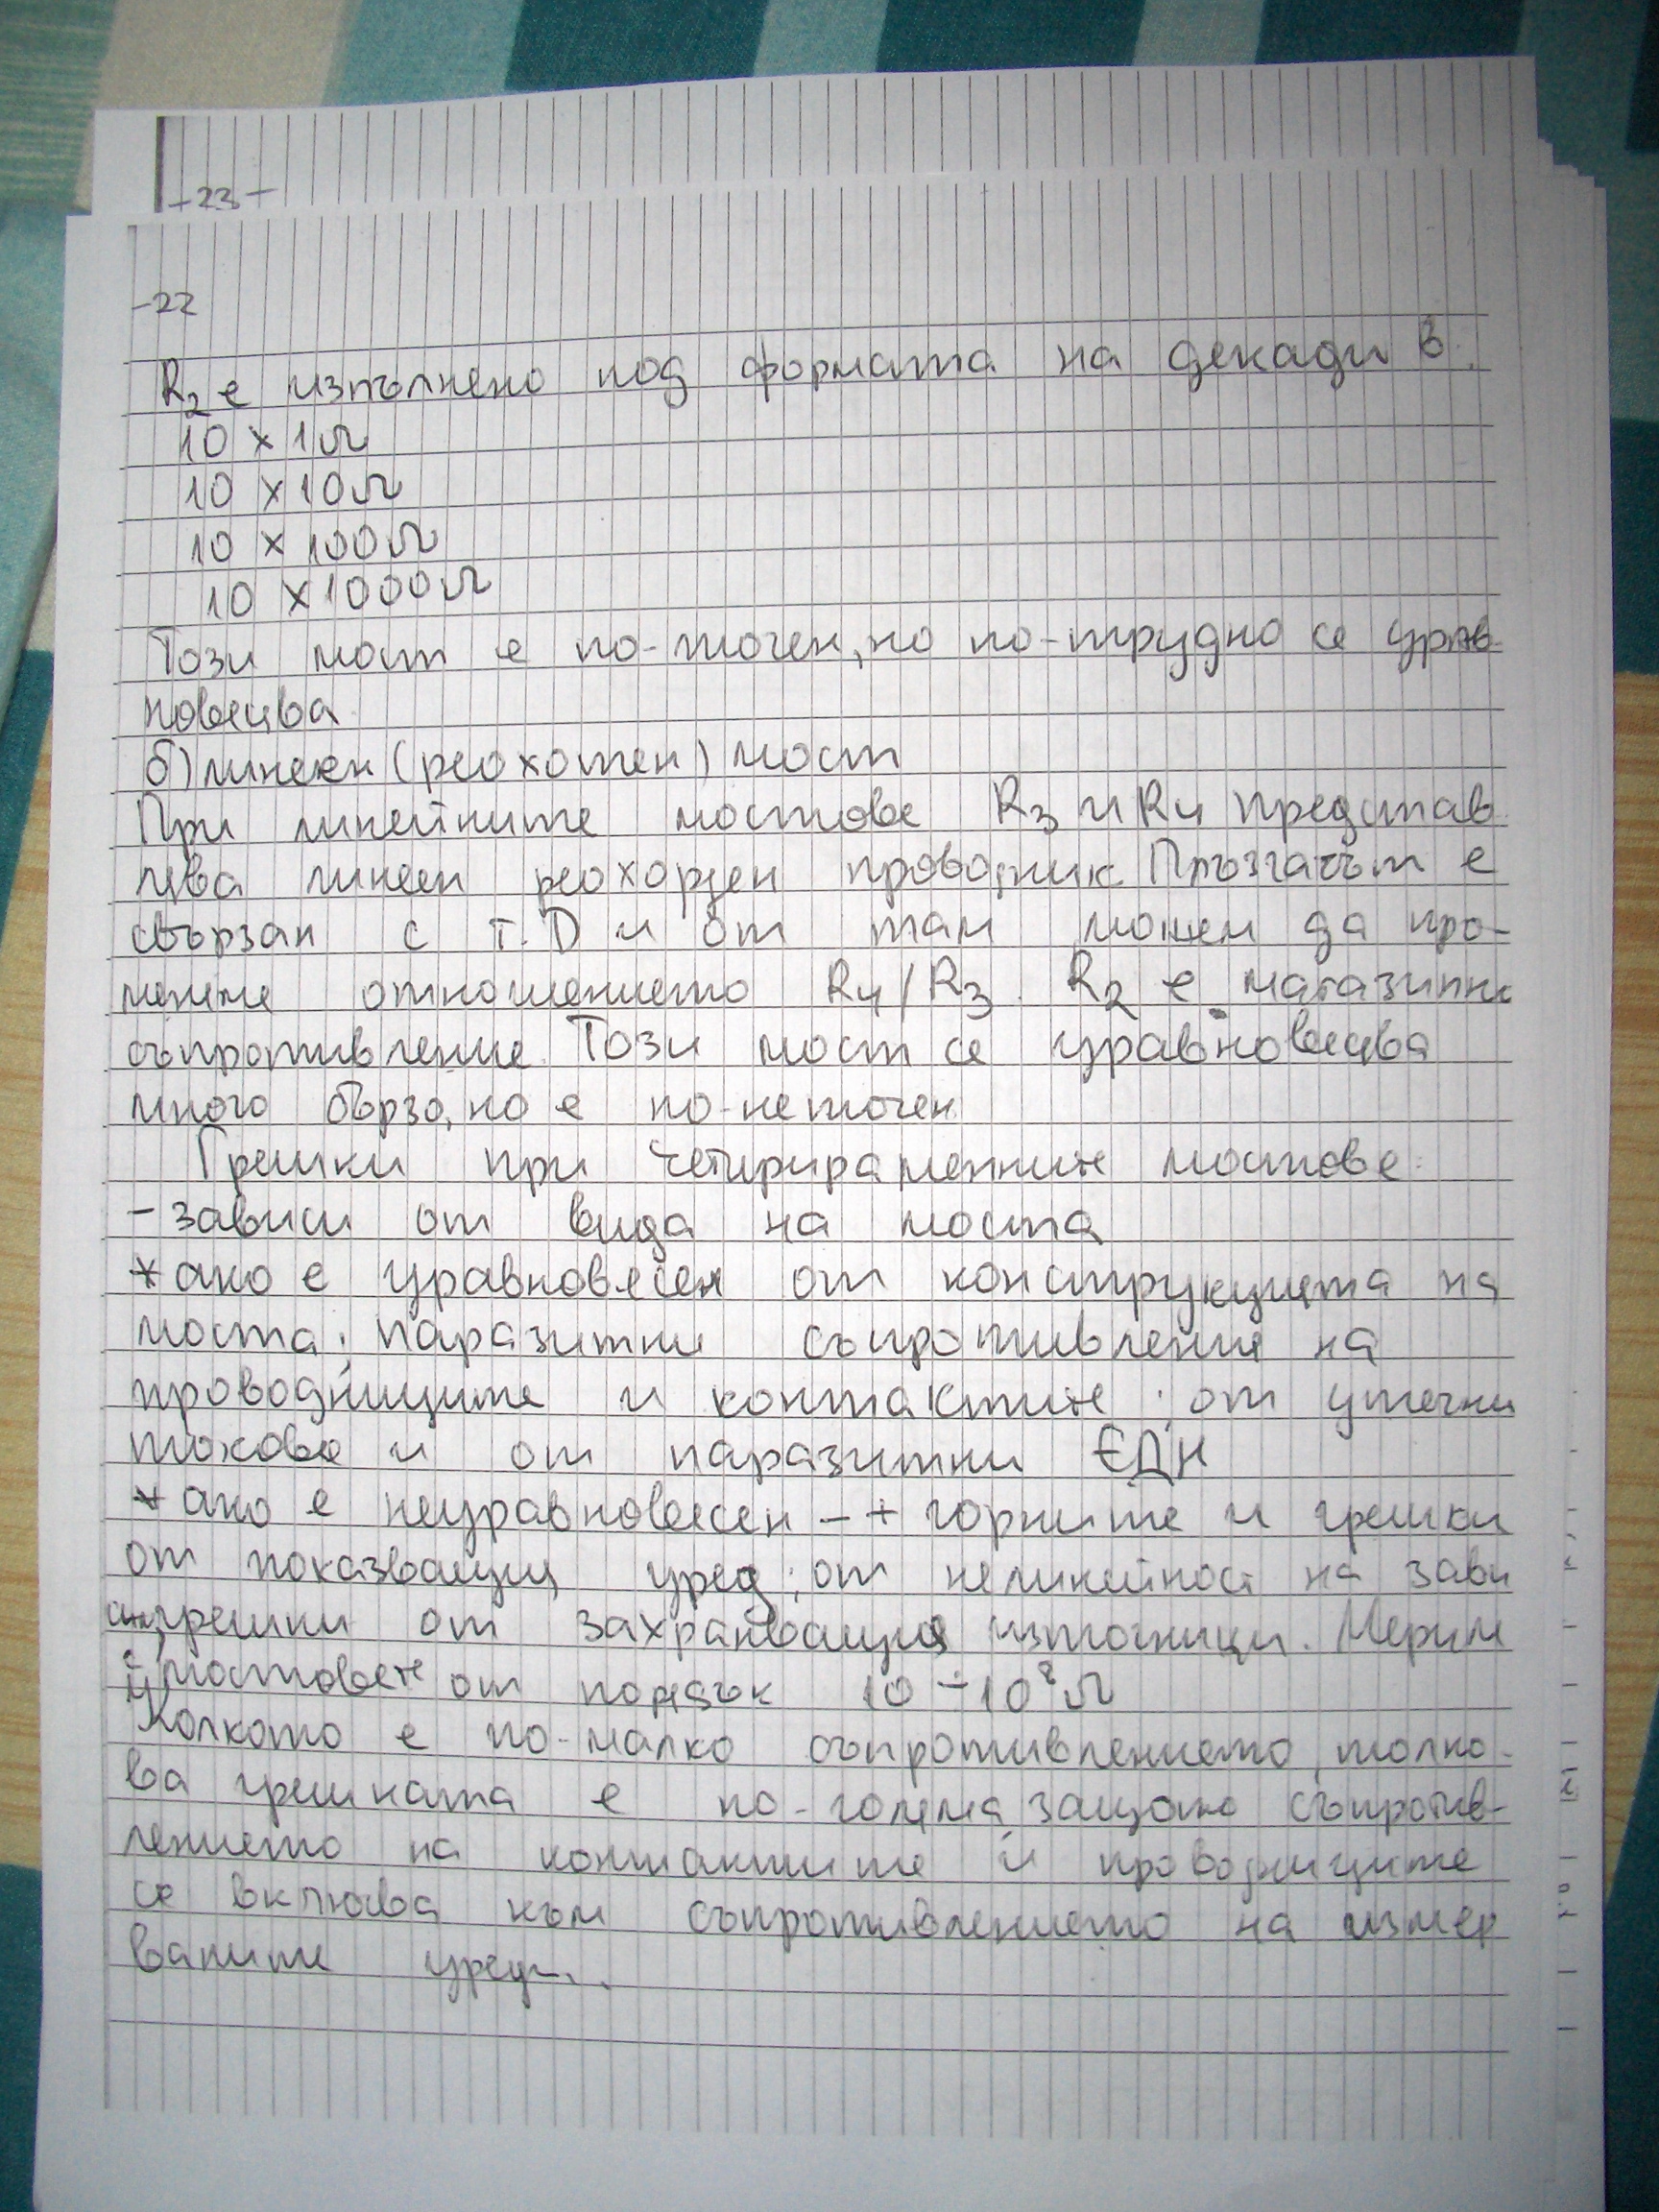 -23-
-22
R2 е изпълнено под формата на декади в
10 x 1Ω
10 x 10Ω
10 x 100Ω
10 x 1000Ω
Този мост е по-точен, но по-трудно се урав-
новесява
б) линеен (реохотен) мост
При линейните мостове R3 и R4 представ
лява линеен реохорден проводник. Плъзгачът е
свързан с т. D и от там можем да про-
меняме отношението R4/R3. R2 е магазинно
съпротивление. Този мост се уравновесява
много бързо, но е по-неточен
Грешки при четирираменните мостове:
- зависи от вида на моста
* ако е уравновесен от конструкцията на
моста; паразитни съпротивления на
проводниците и контактите; от утечни
токове и от паразитни ЕДН
* ако е неуравновесен - + горните и грешки
от показващия уред; от нелинейност на зави
грешки от захранващия източници. Мерим
с мостовете от порядък 10 ÷ 10⁸Ω
Колкото е по-малко съпротивлението, толко-
ва грешката е по-голяма, защото съпротив-
лението на контактите и проводниците
се включва към съпротивлението на измер
ваните уреди.